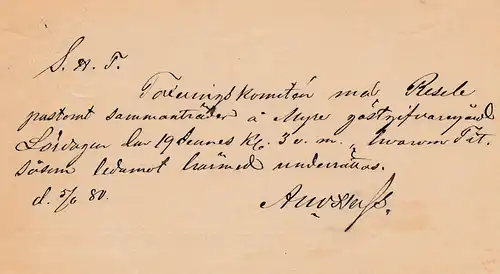 S. H. T.
Tolerings komitén med Resele
pastorat sammanträder å Myre gästgifvaregård
Lördagen den 19 dennes Kl. 3 e. m., hvarom Tit.
såsom ledamot härmed underrättas.
d. 5/6 80.